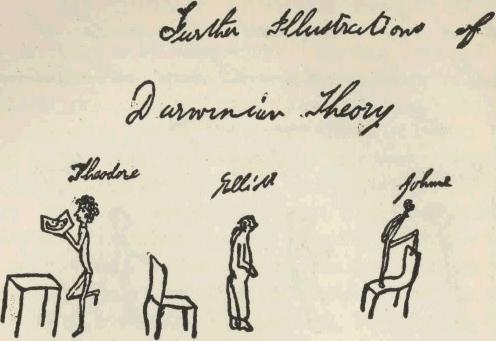 Further Illustrations of
Darwinian Theory
Theodore Elliott Johnnie